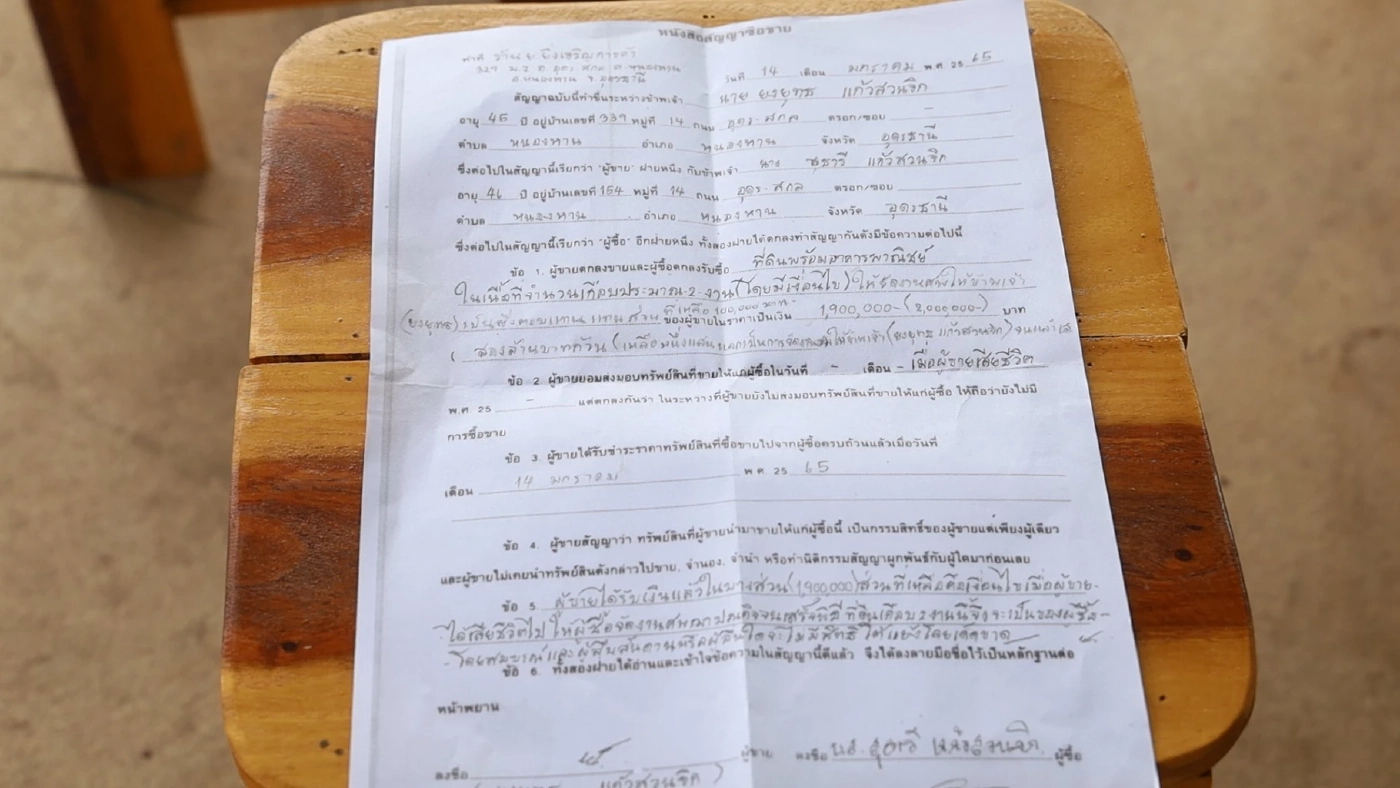 หนังสือสัญญาซื้อขาย
ร้าน ยิ่งเจริญการค้า
329 ม.2 ถ.อุดร สกล ต.หนองหาน
อ.หนองหาน จ.อุดรธานี
วันที่ 14 เดือน มกราคม พ.ศ 25 65
สัญญาฉบับนี้ทำขึ้นระหว่างข้าพเจ้า นาย ยงยุทธ แก้วสวนจิก
อายุ 45 ปี อยู่บ้านเลขที่ 339 หมู่ที่ 14 ถนน อุดร-สกล ตรอก/ซอย -
ตำบล หนองหาน อำเภอ หนองหาน จังหวัด อุดรธานี
ซึ่งต่อไปในสัญญานี้เรียกว่า "ผู้ขาย" ฝ่ายหนึ่ง กับข้าพเจ้า นาง แก้วสวนจิก
อายุ 46 ปี อยู่บ้านเลขที่ 154 หมู่ที่ 14 ถนน อุดร-สกล ตรอก/ซอย
ตำบล หนองหาน อำเภอ หนองหาน จังหวัด อุดรธานี
ซึ่งต่อไปในสัญญานี้เรียกว่า "ผู้ซื้อ" อีกฝ่ายหนึ่ง ทั้งสองฝ่ายได้ตกลงทำสัญญากันดังมีข้อความต่อไปนี้
ข้อ 1. ผู้ขายตกลงขายและผู้ซื้อตกลงรับซื้อ ที่ดินพร้อมอาคารพาณิชย์
ในเนื้อที่จำนวนเกือบประมาณ 2 งาน (โดยมีเงื่อนไข) ให้จัดงานศพให้ข้าพเจ้า
(ยงยุทธ) เป็นสิ่งตอบแทน แทนส่วนที่เหลือ 100,000 บาท ของผู้ขายในราคาเป็นเงิน 1,900,000- (2,000,000-) บาท
( สองล้านบาทถ้วน (เหลือหนึ่งแสน ให้ข้าพเจ้า (ยงยุทธ แก้วสวนจิก)
ข้อ 2. ผู้ขายยอมส่งมอบทรัพย์สินที่ขายให้แก่ผู้ซื้อในวันที่ - เดือน - เมื่อผู้ขายเสียชีวิต
พ.ศ 25 - แต่ตกลงกันว่า ในระหว่างที่ผู้ขายยังไม่ส่งมอบทรัพย์สินที่ขายให้แก่ผู้ซื้อ ให้ถือว่ายังไม่มี
การซื้อขาย
ข้อ 3. ผู้ขายได้รับชำระราคาทรัพย์สินที่ซื้อขายไปจากผู้ซื้อครบถ้วนแล้วเมื่อวันที่
เดือน 14 มกราคม พ.ศ. 25 65
ข้อ 4. ผู้ขายสัญญาว่า ทรัพย์สินที่ผู้ขายนำมาขายให้แก่ผู้ซื้อนี้ เป็นกรรมสิทธิ์ของผู้ขายแต่เพียงผู้เดียว
และผู้ขายไม่เคยนำทรัพย์สินดังกล่าวไปขาย, จำนอง, จำนำ หรือทำนิติกรรมสัญญาผูกพันธ์กับผู้ใดมาก่อนเลย
ข้อ 5 ผู้ขายได้รับเงินแล้วในบางส่วน (1,900,000) ส่วนที่เหลือคือเงื่อนไขเมื่อผู้ขาย-
ได้เสียชีวิตไป ให้ผู้ซื้อจัดงานศพ จนเสร็จพิธี ที่ดินเกือบ 2 งานนี้จึงจะเป็นของผู้ซื้อ-
-โดยสมบูรณ์และผู้สืบสันดานหรือผู้อื่นใดจะไม่มีสิทธิโต้แย้งโดยเด็ดขาด
ข้อ 6. ทั้งสองฝ่ายได้อ่านและเข้าใจข้อความในสัญญานี้ดีแล้ว จึงได้ลงลายมือชื่อไว้เป็นหลักฐานต่อ
หน้าพยาน
ลงชื่อ ผู้ขาย ลงชื่อ ผู้ซื้อ
แก้วสวนจิก )